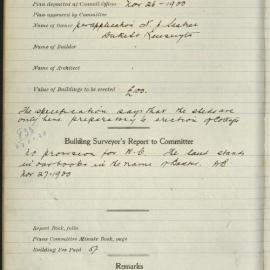 Plan deposited at Council Offices Nov 26 - 1900
Plan approved by Committee
Name of Owner per application N. J.
Dukes St Kensington
Name of Builder
Name of Architect
Value of Buildings to be erected £00.
The specification says that the sheds are
only here preparatory to erection of Cottage
Building Surveyor's Report to Committee
no provision for W.C. The land stands
in our books in the name of
Nov 27 - 1900
Report Book, folio
Plans Committee Minute Book, page
Building Fee Paid 5/
Remarks